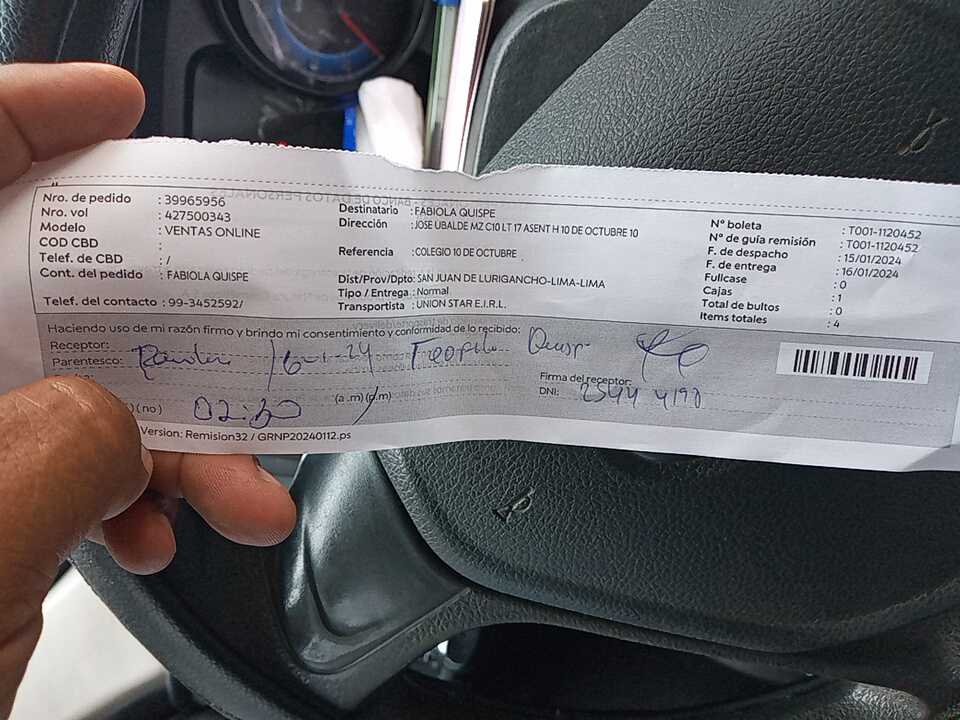 Nro. de pedido : 39965956
Nro. vol : 427500343
Modelo : VENTAS ONLINE
COD CBD :
Telef. de CBD : /
Cont. del pedido : FABIOLA QUISPE
Telef. del contacto : 99-3452592/
Destinatario : FABIOLA QUISPE
Dirección : JOSE UBALDE MZ C10 LT 17 ASENT H 10 DE OCTUBRE 10
Referencia : COLEGIO 10 DE OCTUBRE
Dist/Prov/Dpto: SAN JUAN DE LURIGANCHO-LIMA-LIMA
Tipo / Entrega : Normal
Transportista : UNION STAR E.I.R.L.
N° boleta : T001-1120452
N° de guía remisión : T001-1120452
F. de despacho : 15/01/2024
F. de entrega : 16/01/2024
Fullcase : 0
Cajas : 1
Total de bultos : 0
Items totales : 4
Haciendo uso de mi razón firmo y brindo mi consentimiento y conformidad de lo recibido:
Receptor:
Parentesco: 16-1-24 Quisp
Firma del receptor:
) ( no ) 02:30 (a .m) (p.m)
DNI: 2544 4190
Version: Remision32 / GRNP20240112.ps